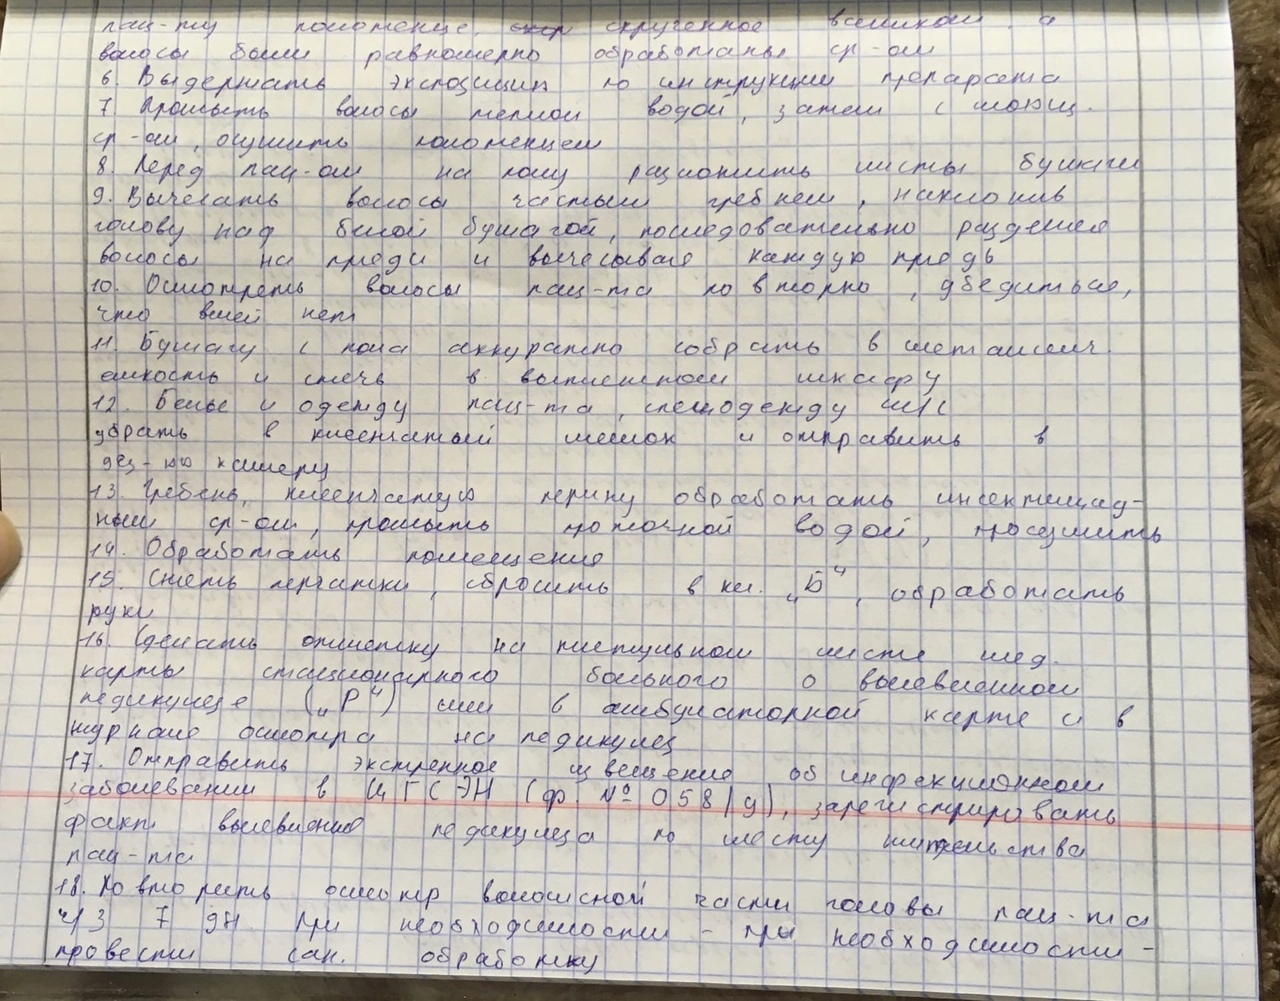 пац-ту полотенце, скрученное валиком, а
волосы были равномерно обработаны ср-ом
6. Выдержать экспозицию по инструкции препарата
7. Промыть волосы теплой водой, затем с моющ.
ср-ом, осушить полотенцем
8. Перед пац-ом на полу разложить листы бумаги
9. Вычесать волосы частым гребнем, наклонив
голову над белой бумагой, последовательно разделяя
волосы на пряди и вычесывая каждую прядь
10. Осмотреть волосы пац-та повторно, убедиться,
что вшей нет
11. Бумагу с пола аккуратно собрать в металлич.
емкость и сжечь в вытяжном шкафу
12. Белье и одежду пац-та, спецодежду м/с
убрать в клеенчатый мешок и отправить в
дез-ую камеру
13. Гребень, клеенчатую перину обработать инсектицид-
ным ср-ом, промыть проточной водой, просушить
14. Обработать помещение
15. Снять перчатки, сбросить в кл. „Б“, обработать
руки
16. Сделать отметку на титульном листе мед.
карты стационарного больного о выявленном
педикулезе („Р“) или в амбулаторной карте и в
журнале осмотра на педикулез
17. Отправить экстренное извещение об инфекционном
заболевании в ЦГСЭН (ф. №058/у), зарегистрировать
факт выявления педикулеза по месту жительства
пац-та
18. Повторить осмотр волосистой части головы пац-та
ч/з 7 дн. При необходимости - при необходимости -
провести сан. обработку